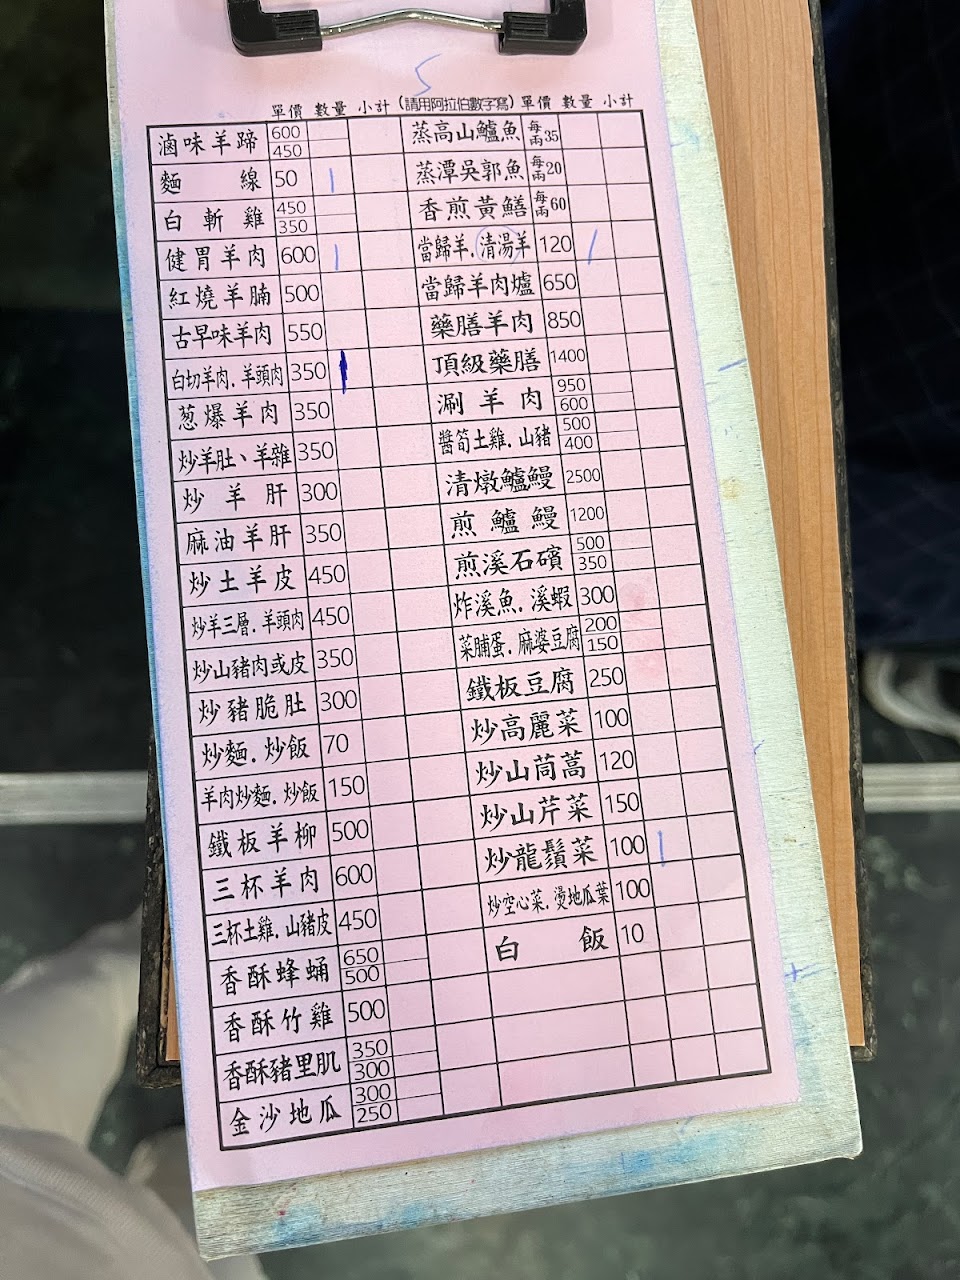 5
單價 數量 小計 (請用阿拉伯數字寫) 單價 數量 小計
滷味羊蹄 600 450
麵線 50 1
白斬雞 450 350
健胃羊肉 600 1
紅燒羊腩 500
古早味羊肉 550
白切羊肉.羊頭肉 350 1
葱爆羊肉 350
炒羊肚、羊雜 350
炒羊肝 300
麻油羊肝 350
炒土羊皮 450
炒羊三層.羊頭肉 450
炒山豬肉或皮 350
炒豬脆肚 300
炒麵.炒飯 70
羊肉炒麵.炒飯 150
鐵板羊柳 500
三杯羊肉 600
三杯土雞.山豬皮 450
香酥蜂蛹 650 500
香酥竹雞 500
香酥豬里肌 350 300
金沙地瓜 300 250
蒸高山鱸魚 每兩35
蒸潭吳郭魚 每兩20
香煎黃鱔 每兩60
當歸羊.清湯羊 120 1
當歸羊肉爐 650
藥膳羊肉 850
頂級藥膳 1400
涮羊肉 950 600
醬筍土雞.山豬 500 400
清燉鱸鰻 2500
煎鱸鰻 1200
煎溪石礦 500 350
炸溪魚.溪蝦 300
菜脯蛋.麻婆豆腐 200 150
鐵板豆腐 250
炒高麗菜 100
炒山茼蒿 120
炒山芹菜 150
炒龍鬚菜 100 1
炒空心菜.燙地瓜葉 100
白飯 10